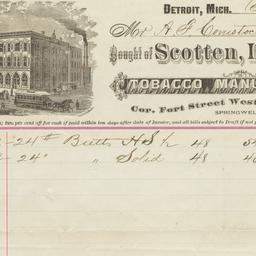 DETROIT, MICH.
Mr A. F. Comstoc
Bought of SCOTTEN, L
TOBACCO MANU
Cor. Fort Street West
SPRINGWEL
two per cent off for cash if paid within ten days after date of Invoice, and all bills subject to Draft if not p
24# Butts H S 48
24" " Solid 48